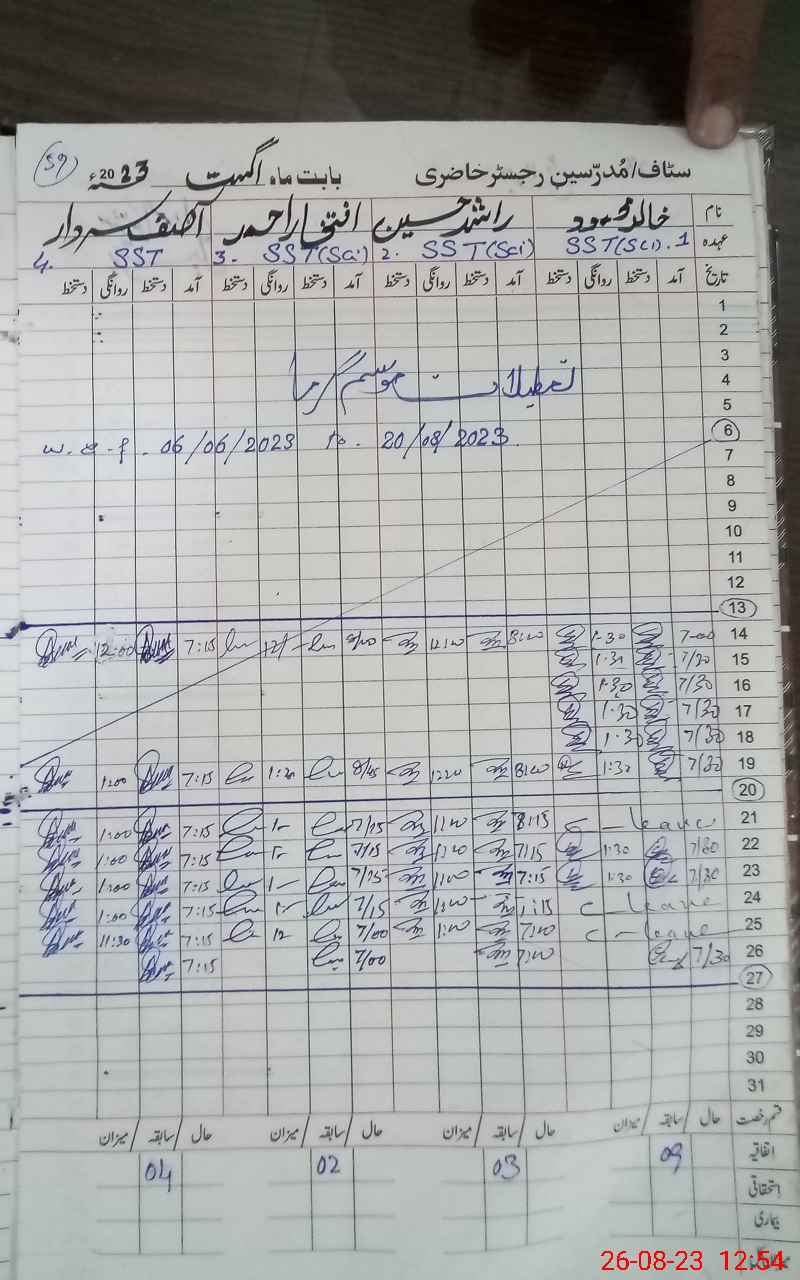 59
سٹاف/مُدرّسین رجسٹر حاضری بابت ماہ اگست 2023ء
نام خالد محمود راشد حسین افتخار احمد آصف سردار
عہدہ 1. SST(Sci) 2. SST(Sci) 3. SST(Sci) 4. SST
تاریخ آمد دستخط روانگی دستخط آمد دستخط روانگی دستخط آمد دستخط روانگی دستخط آمد دستخط روانگی دستخط
1
2
3
تعطیلات موسم گرما
4
5
6
w.e.f. 06/06/2023 to. 20/08/2023.
7
8
9
10
11
12
13
14 7-00 1-30 8:00 12:00 8/00 7:15 12:00
15 7/30 1:30
16 7/30 1:30
17 7/30 1:30
18 7/30 1:30
19 7/30 1:30 8:00 1220 8/45 1:20 7:15 1:00
20
21 C-leave 8:15 1:00 7/15 1- 7:15 1:00
22 7/30 1:30 7:15 1:00 7/15 1- 7:15 1:00
23 7/30 1:30 7:15 1:00 7/15 1- 7:15 1:00
24 C-leave 7:15 1:00 7/15 1- 7:15 1:00
25 C-leave 7:00 1:00 7/00 12 7:15 11:30
26 7/30 7:00 7/00 7:15
27
28
29
30
31
قسم رخصت حال / سابقہ / میزان حال / سابقہ / میزان حال / سابقہ / میزان حال / سابقہ / میزان
اتفاقیہ 09 03 02 04
استحقاقی
بیماری
26-08-23 12:54